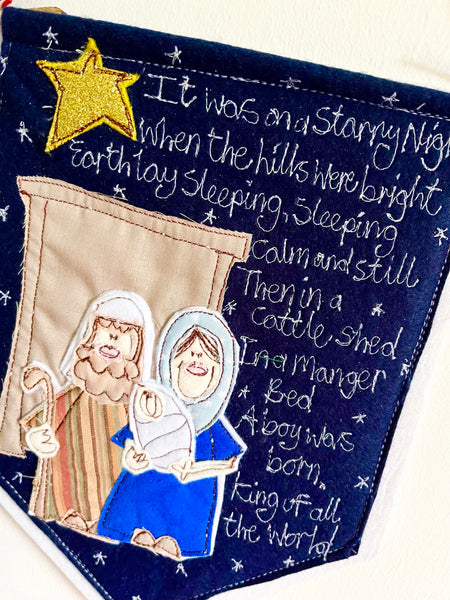 It was on a Starry Nigh
when the hills were bright
Earth lay Sleeping, Sleeping
Calm and still
Then in a
cattle shed
In a manger
Bed
A boy was
born.
King of all
the World